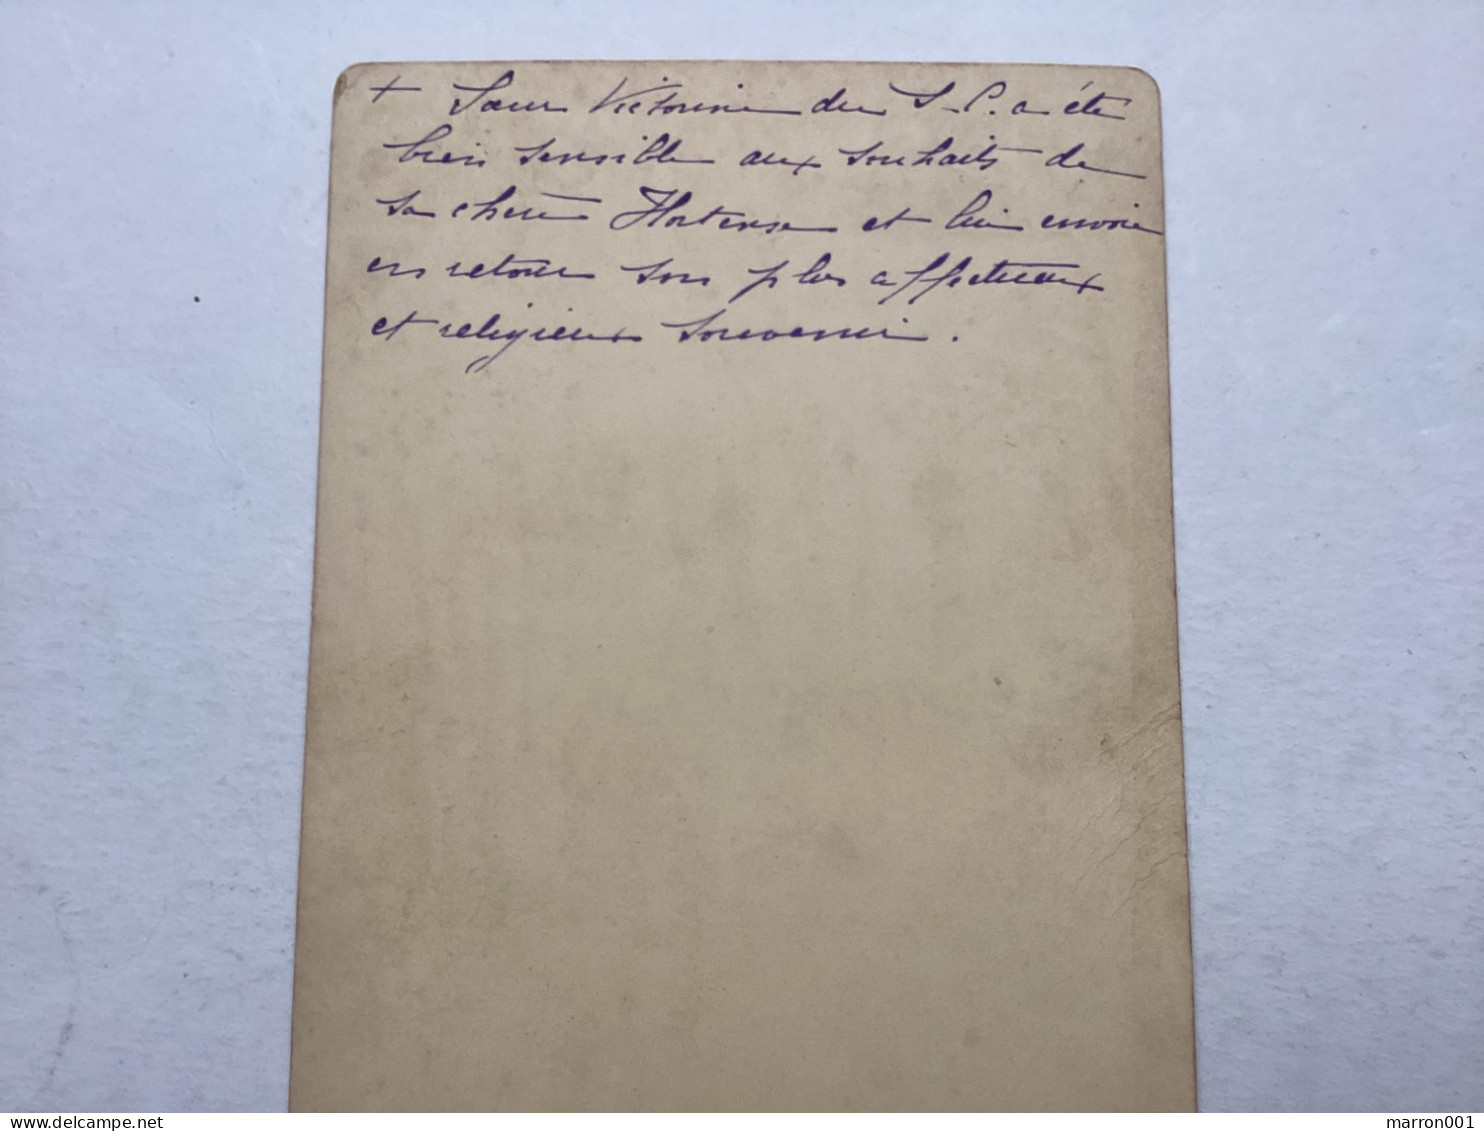 + Sœur Victorine du S. C. a été
bien sensible aux souhaits de
sa chère Hortense et lui envoie
en retour son plus affectueux
et religieux souvenir.
delcampe.net
marron001